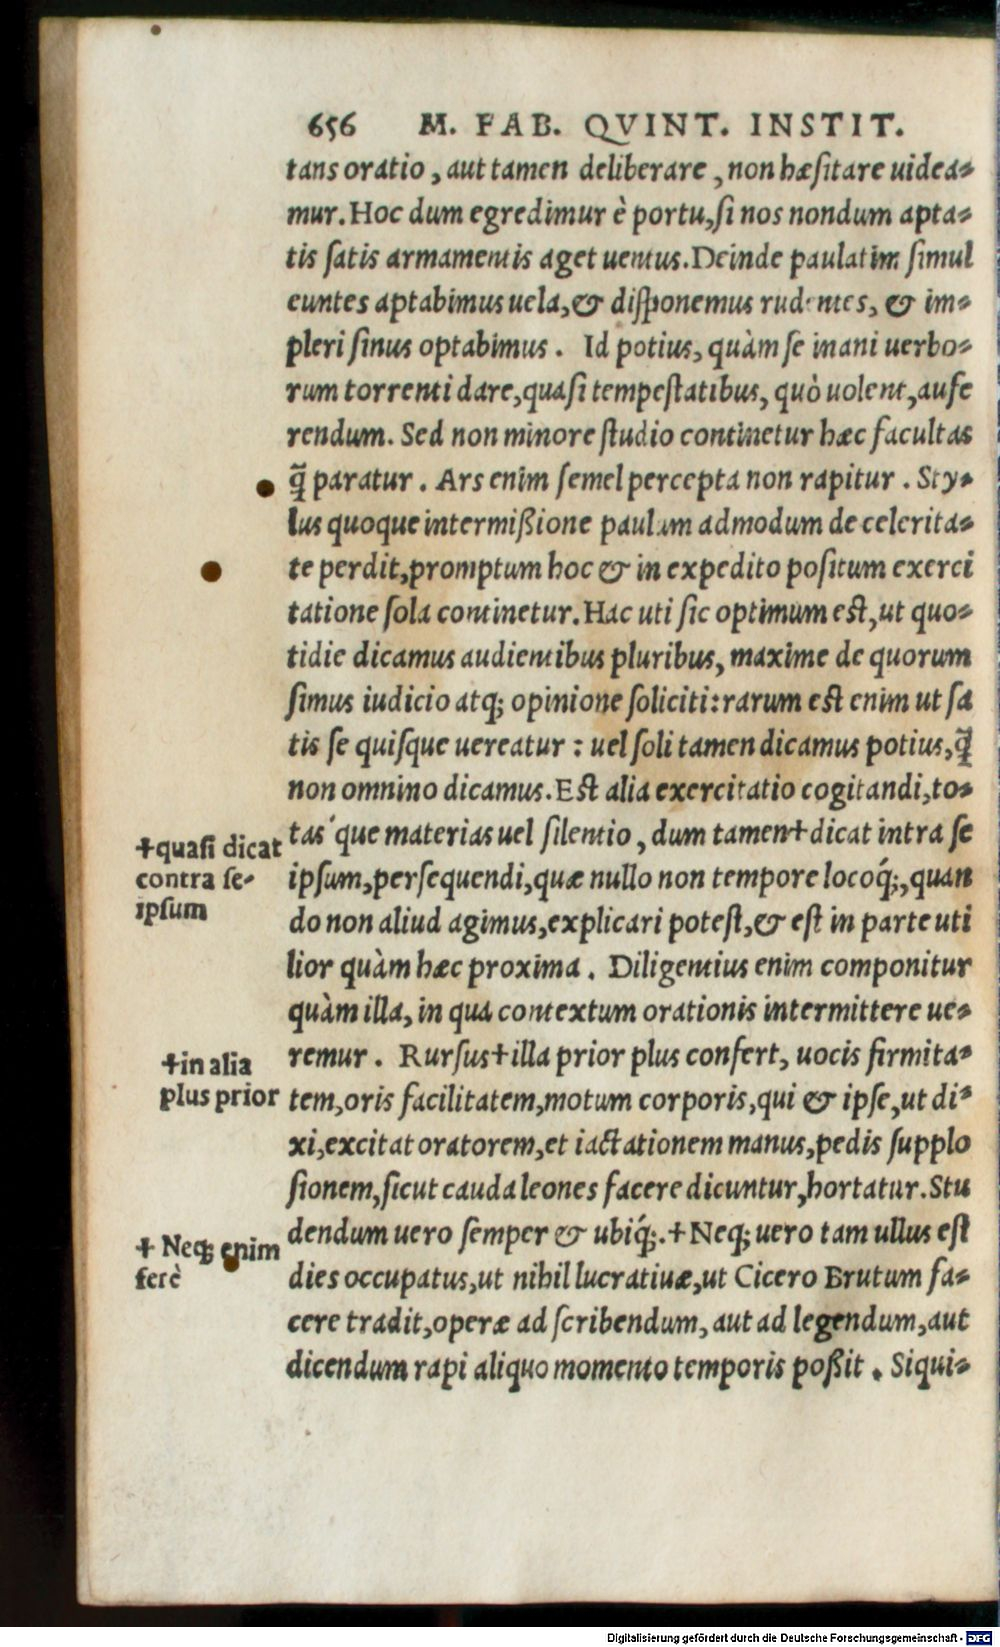 656 M. FAB. QVINT. INSTIT.
tans oratio, aut tamen deliberare, non hæsitare uidea-
mur. Hoc dum egredimur è portu, si nos nondum apta-
tis satis armamentis aget uentus. Deinde paulatim simul
euntes aptabimus uela, & disponemus rudentes, & im-
pleri sinus optabimus. Id potius, quàm se inani uerbo-
rum torrenti dare, quasi tempestatibus, quò uolent, aufe
rendum. Sed non minore studio continetur hæc facultas
q̃ paratur. Ars enim semel percepta non rapitur. Sty-
lus quoque intermißione paulum admodum de celerita-
te perdit, promptum hoc & in expedito positum exerci
tatione sola continetur. Hac uti sic optimum est, ut quo-
tidie dicamus audientibus pluribus, maxime de quorum
simus iudicio atq; opinione soliciti: rarum est enim ut sa
tis se quisque uereatur: uel soli tamen dicamus potius, q̃
non omnino dicamus. Est alia exercitatio cogitandi, to-
tas´que materias uel silentio, dum tamen+dicat intra se
ipsum, persequendi, quæ nullo non tempore locoq́;, quan
do non aliud agimus, explicari potest, & est in parte uti
lior quàm hæc proxima. Diligentius enim componitur
quàm illa, in qua contextum orationis intermittere ue-
remur. Rursus+illa prior plus confert, uocis firmita-
tem, oris facilitatem, motum corporis, qui & ipse, ut di-
xi, excitat oratorem, et iactationem manus, pedis supplo
sionem, sicut cauda leones facere dicuntur, hortatur. Stu
dendum uero semper & ubiq́;. +Neq; uero tam ullus est
dies occupatus, ut nihil lucratiuæ, ut Cicero Brutum fa-
cere tradit, operæ ad scribendum, aut ad legendum, aut
dicendum rapi aliquo momento temporis poßit. Siqui-
+quasi dicat
contra se-
ipsum
+in alia
plus prior
+ Neq; enim
ferè
Digitalisierung gefördert durch die Deutsche Forschungsgemeinschaft - DFG